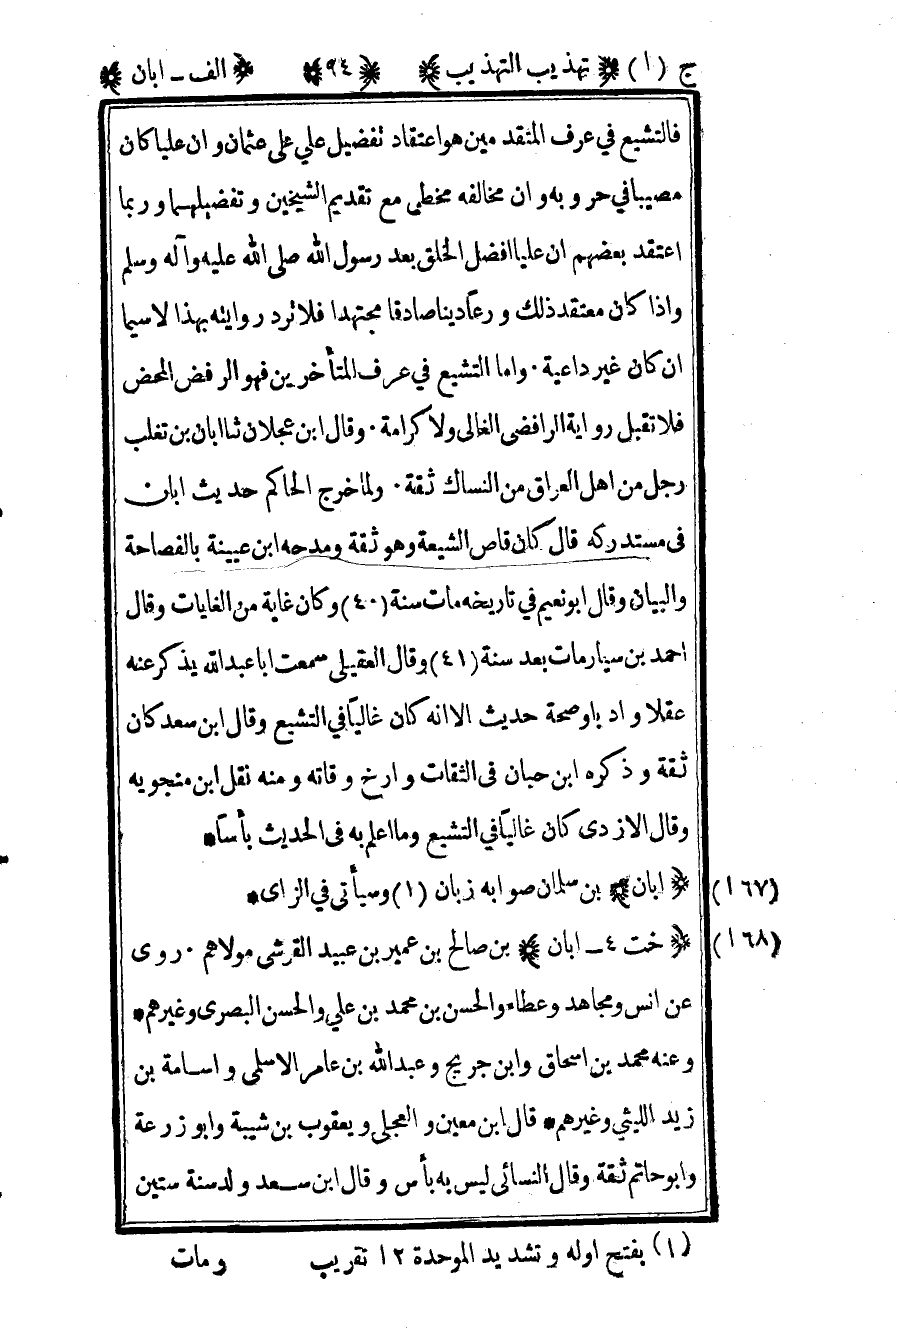 ج (١) ﴿ تهذيب التهذيب ﴾ ﴿ ٩٤ ﴾ ﴿ الف ـ ابان ﴾
فالتشيع في عرف المتقدمين هو اعتقاد تفضيل علي على عثمان و ان عليا كان
مصيبا في حروبه و ان مخالفه مخطئ مع تقديم الشيخين و تفضيلهما و ربما
اعتقد بعضهم ان عليا افضل الخلق بعد رسول الله صلى الله عليه وآله وسلم
واذا كان معتقد ذلك و رعاً دينا صادقا مجتهدا فلا ترد روايته بهذا لاسيما
ان كان غير داعية . واما التشيع في عرف المتأخرين فهو الرفض المحض
فلا تقبل رواية الرافضي الغالى ولا كرامة . وقال ابن عجلان ثنا ابان بن تغلب
رجل من اهل العراق من النساك ثقة . ولما خرج الحاكم حديث ابان
فى مستدركه قال كان قاص الشيعة وهو ثقة ومدحه ابن عيينة بالفصاحة
والبيان وقال ابونعيم في تاريخه مات سنة (٤٠) و كان غاية من الغايات وقال
احمد بن سيار مات بعد سنة (٤١) وقال العقيلى سمعت ابا عبدالله يذكر عنه
عقلا و ادبا وصحة حديث الا انه كان غالياً في التشيع وقال ابن سعد كان
ثقة و ذكره ابن حبان فى الثقات و ارخ وفاته و منه نقل ابن منجويه
وقال الازدى كان غالياً في التشيع وما اعلم به فى الحديث بأساً*
(١٦٧) ﴿ ابان ﴾ بن سلمان صوابه زبان (١) وسيأتى في الزاى*
(١٦٨) ﴿ خت ٤ ـ ابان ﴾ بن صالح بن عمير بن عبيد القرشى مولاهم . روى
عن انس ومجاهد و عطاء والحسن بن محمد بن علي والحسن البصرى وغيرهم*
و عنه محمد بن اسحاق وابن جريج و عبدالله بن عامر الاسلمى و اسامة بن
زيد الليثي وغيرهم* قال ابن معين و العجلى و يعقوب بن شيبة وابو زرعة
وابوحاتم ثقة وقال النسائى ليس به بأس و قال ابن سعد و لد سنة ستين
(١) بفتح اوله و تشديد الموحدة ١٢ تقريب ومات